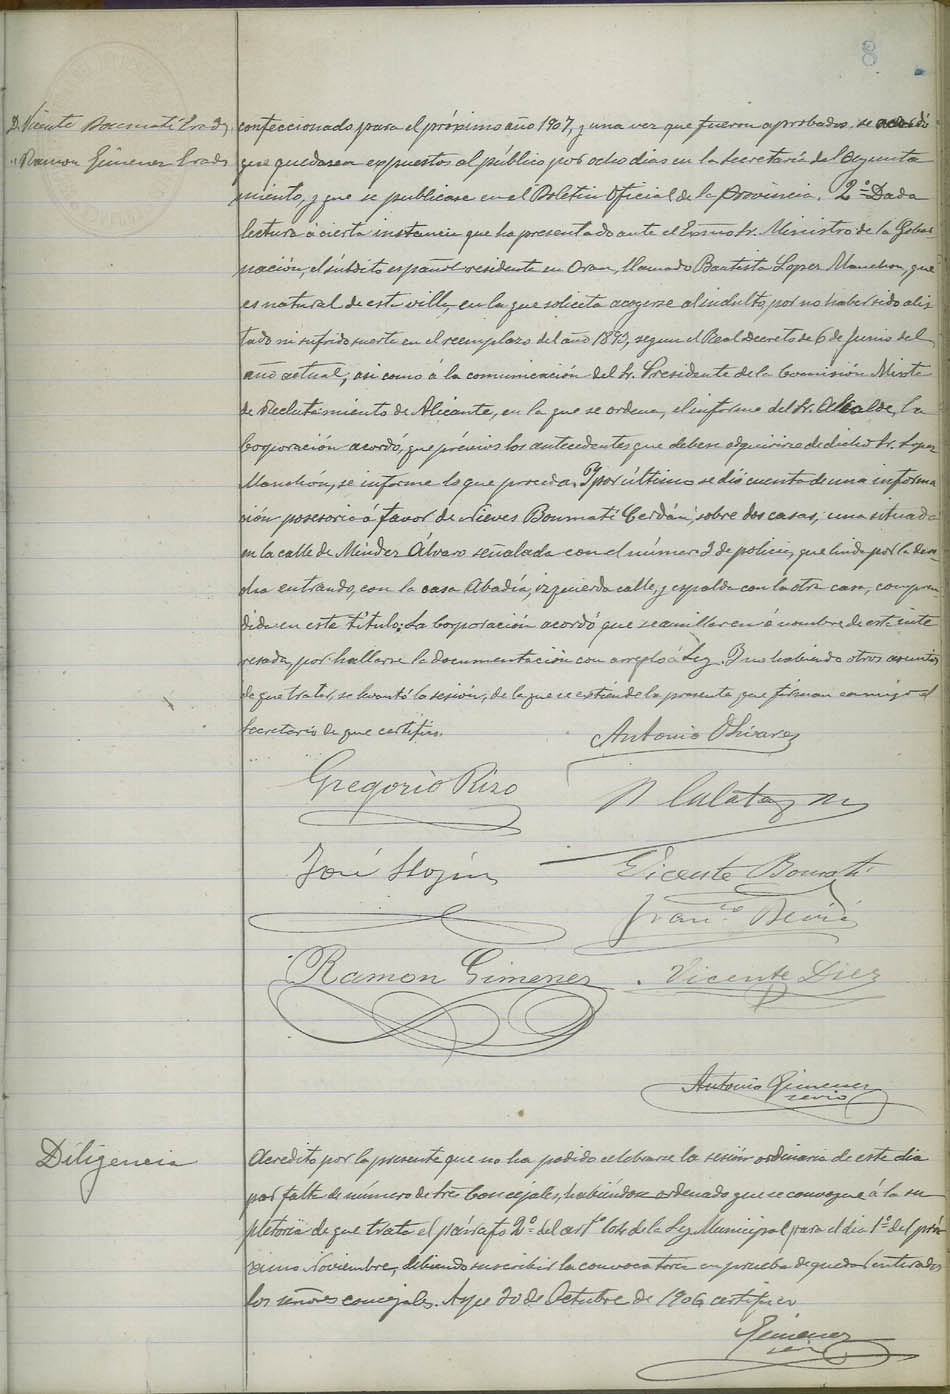 8
D. Vicente Boumatí Cerdá
" Ramon Gimenez Cerdá
confeccionado para el próximo año 1907, y una vez que fueron aprobados, se acordó
que quedasen expuestos al público por ocho dias en la Secretaría del Ayunta
miento, y que se publicase en el Boletin Oficial de la Provincia. 2º Dada
lectura á cierta instancia que ha presentado ante el Exmo Sr. Ministro de la Gober-
nación, el súbdito español residente en Oran, llamado Bautista Lopez Manchon, que
es natural de esta villa, en la que solicita acogerse al indulto, por no haber sido alis
tado ni sufrido suerte en el reemplazo del año 1893, segun el Real decreto de 6 de Junio del
año actual; asi como á la comunicación del Sr. Presidente de la Comisión Mixta
de Reclutamiento de Alicante, en la que se ordena, el informe del Sr. Alcalde, la
Corporación acordó, que prévios los antecedentes que deben adquirirse de dicho Sr. Lopez
Manchón, se informe lo que proceda. Y por último se dió cuenta de una informa
ción posesoria á favor de Nieves Boumatí Cerdán, sobre dos casas, una situada
en la calle de Méndez Álvaro señalada con el número 2 de policia, que linda por la dere
cha entrando, con la casa Abadía, izquierda calle, y espalda con la otra casa, compren
dida en este título; La Corporación acordó que se amillaren á nombre de esta inte
resada, por hallarse la documentación con arreglo á Ley. Y no habiendo otros asuntos
de que tratar, se levantó la sesión, de la que se extiende la presente que firman conmigo el
Secretario de que certifico.
Antonio Olivares
Gregorio Rizo
José
Vicente Boumatí
Franco
Ramon Gimenez
Vicente Diez
Antonio Gimenez
srio
Diligencia
Acredito por la presente que no ha podido celebrarse la sesión ordinaria de este dia
por falta de número de tres Concejales, habiéndose ordenado que se convoque á la su
pletoria de que trata el párrafo 2º del artº 104 de la Ley Municipal para el dia 1º del pró-
ximo Noviembre, debiendo suscribir la convocatoria en prueba de quedar enterados
los señores concejales. Aspe 30 de Octubre de 1906, certifico
Gimenez
srio